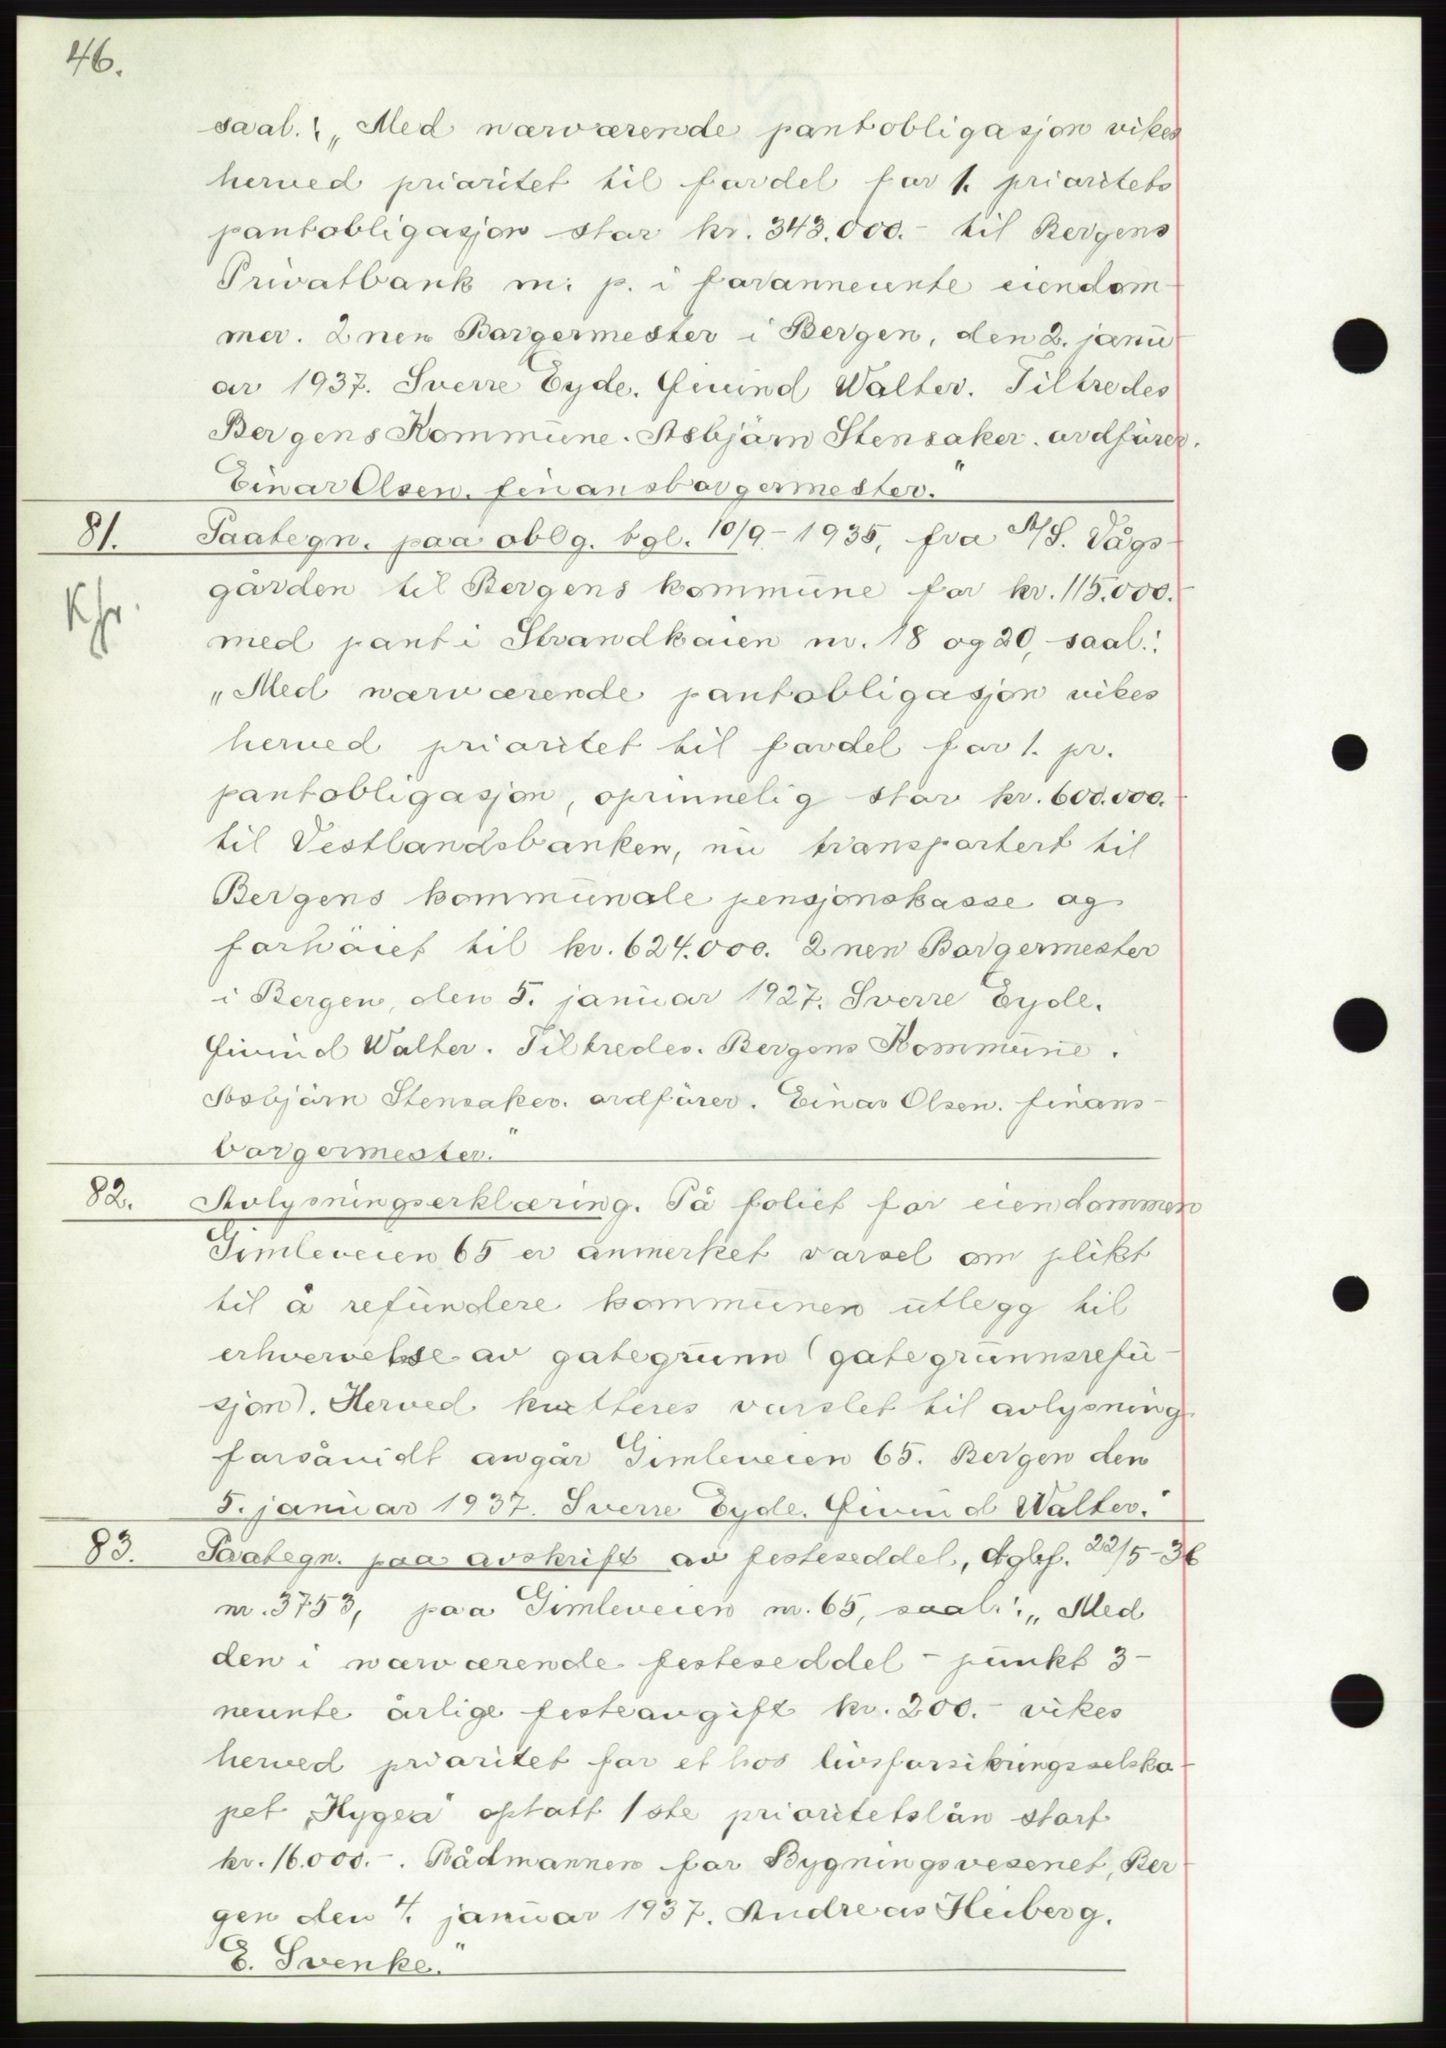 46.
saal.: „Med nærværende pantobligasjon vikes
herved prioritet til fordel for 1. prioritets
pantobligasjon stor kr. 343.000.- til Bergens
Privatbank m: p. i forannevnte eiendom-
mer. 2nen Borgermester i Bergen, den 2. janu-
ar 1937. Sverre Eyde. Eivind Walter. Tiltredes
Bergens Kommune. Asbjörn Stensaker. ordförer.
Einar Olsen. finansborgermester."
81. Paategn. paa oblg. tgl. 10/9-1935, fra A/S. Vågs-
gården til Bergens kommune for kr. 115.000.-
Khr.
med pant i Strandkaien nr. 18 og 20, saal.:
„Med nærværende pantobligasjon vikes
herved prioritet til fordel for 1. pr.
pantobligasjon, oprinnelig stor kr. 600.000.-
til Vestlandsbanken, nu transportert til
Bergens kommunale pensjonskasse og
forhöiet til kr. 624.000. 2nen Borgermester
i Bergen, den 5. januar 1927. Sverre Eyde.
Eivind Walter. Tiltredes. Bergens Kommune.
Asbjörn Stensaker. ordförer. Einar Olsen. finans-
borgermester."
82. Avlysningserklæring. På foliet for eiendommen
Gimleveien 65 er anmerket varsel om plikt
til å refundere kommunen utlegg til
erhvervelse av gategrunn (gategrunnsrefu-
sjon). Herved kvitteres varslet til avlysning
forsåvidt angår Gimleveien 65. Bergen den
5. januar 1937. Sverre Eyde. Eivind Walter."
83. Paategn. paa avskrift av festeseddel, dgbf. 22/5-36
nr. 3753, paa Gimleveien nr. 65, saal.: „Med
den i nærværende festeseddel - punkt 3 -
nevnte årlige festeavgift kr. 200.- vikes
herved prioritet for et hos livsforsikringsselska-
pet „Hygea" optatt 1ste prioritetslån stort
kr. 16.000.-. Rådmannen for Bygningsvesenet, Ber-
gen den 4. januar 1937. Andreas Heiberg.
E. Svenke."